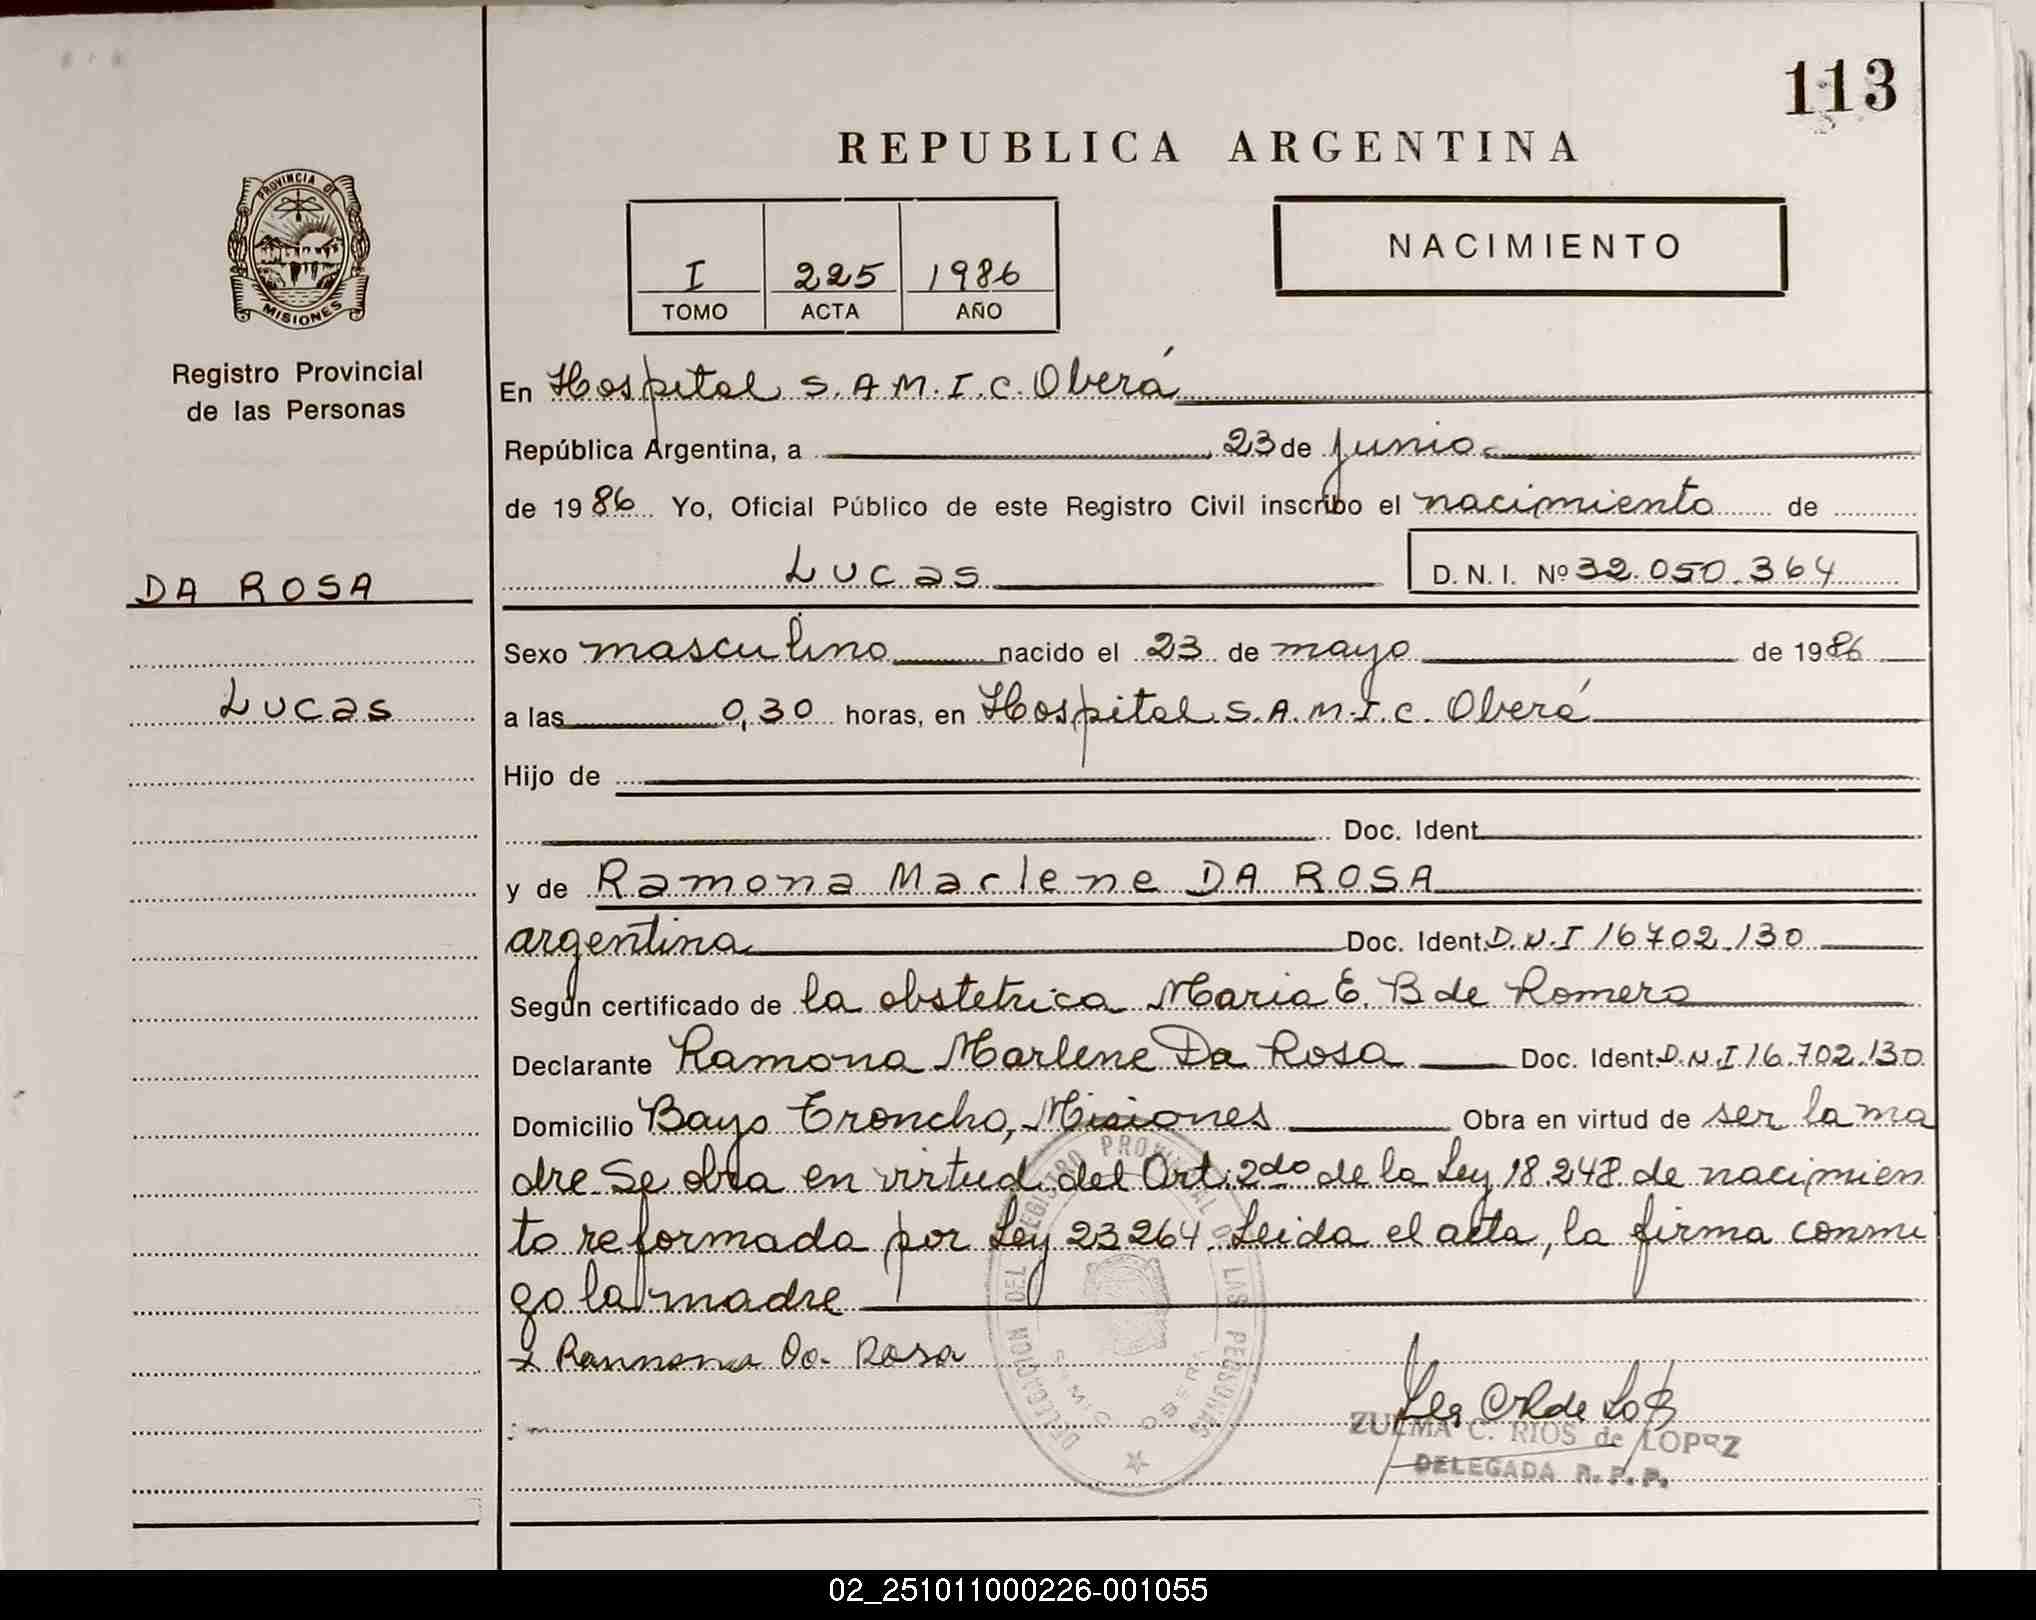 113
REPUBLICA ARGENTINA
PROVINCIA DE
MISIONES
Registro Provincial
de las Personas
I 225 1986
TOMO ACTA AÑO
NACIMIENTO
En Hospital S.A.M.I.C. Oberá
República Argentina, a 23 de junio
de 1986 Yo, Oficial Público de este Registro Civil inscribo el nacimiento de
DA ROSA
Lucas
D.N.I. Nº 32.050.364
Sexo masculino nacido el 23 de mayo de 1986
Lucas
a las 0,30 horas, en Hospital S.A.M.I.C. Oberá
Hijo de
Doc. Ident.
y de Ramona Marlene DA ROSA
argentina Doc. Ident. D.N.I 16702.130
Según certificado de la obstetrica Maria E. B de Romero
Declarante Ramona Marlene Da Rosa Doc. Ident. D.N.I 16.702.130
Domicilio Bayo Troncho, Misiones Obra en virtud de ser la ma
dre Se obra en virtud del Art. 2do de la Ley 18.248 de nacimien
to reformada por Ley 23264. Leida el acta, la firma conmi
go la madre
Ramona Da Rosa
DELEGACION DEL REGISTRO PROVINCIAL DE LAS PERSONAS
SAMIC OBERA
ZULMA C. RIOS de LOPEZ
DELEGADA R.P.P.
02_251011000226-001055